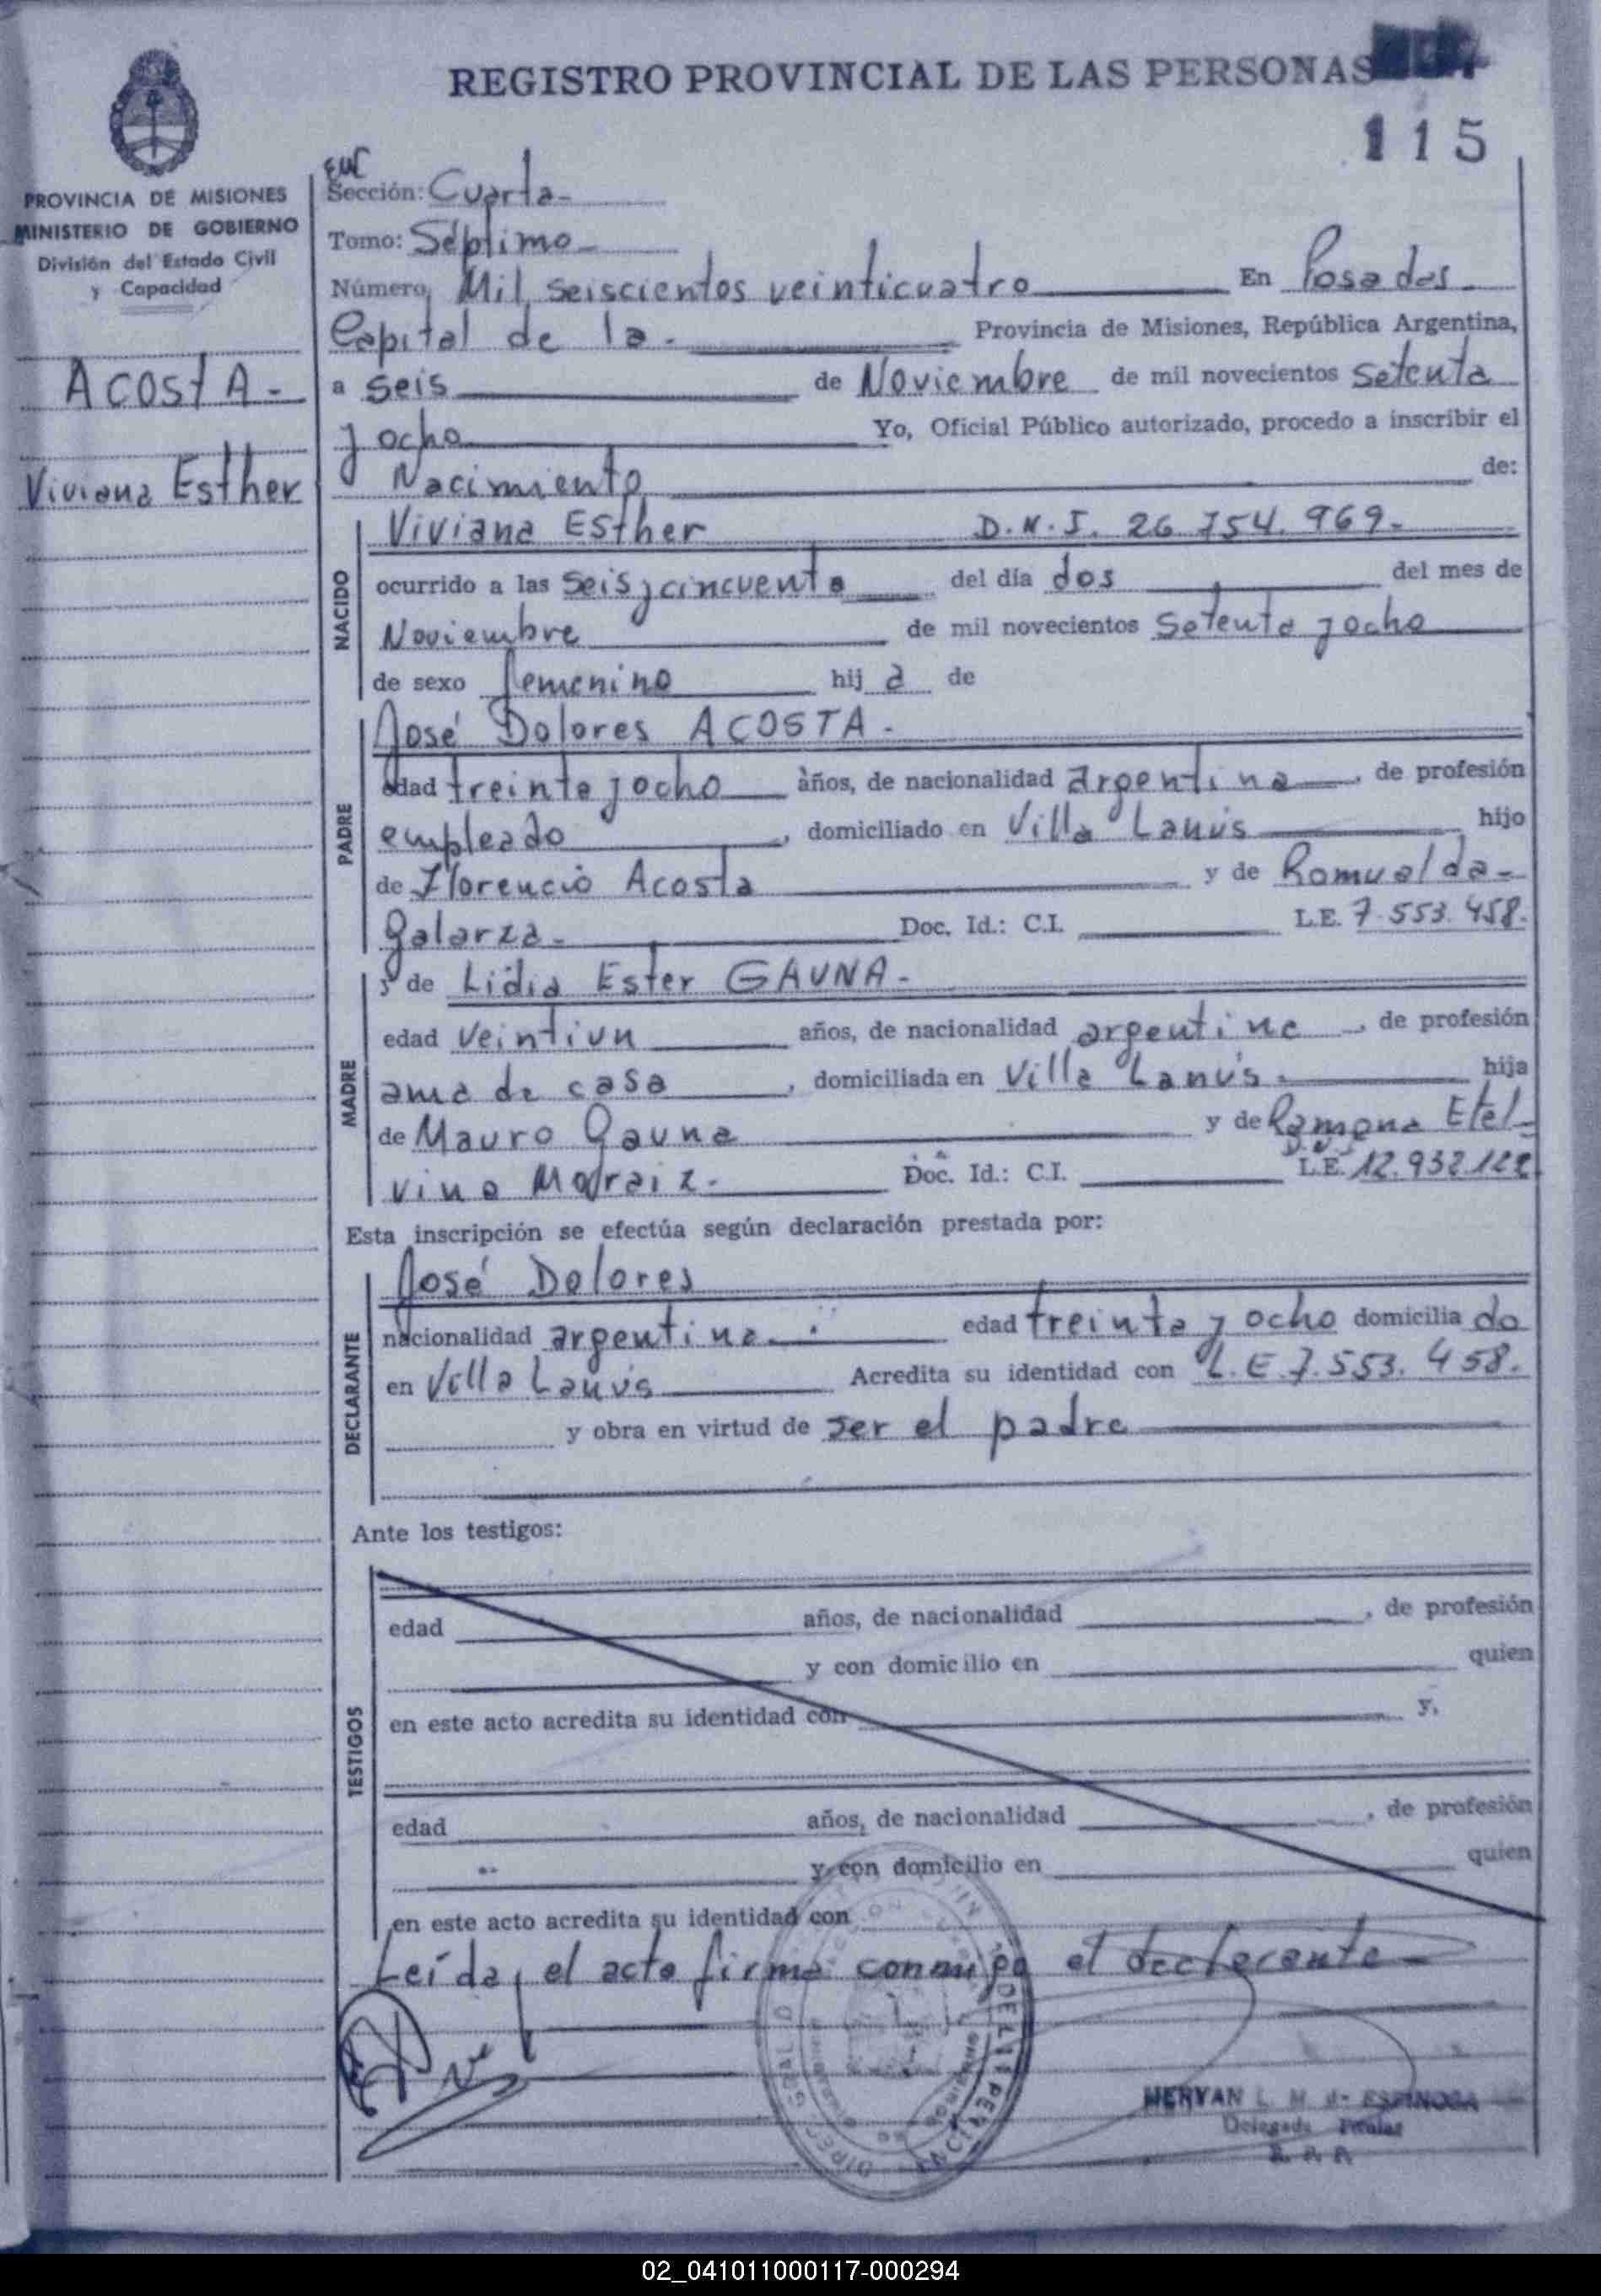 REGISTRO PROVINCIAL DE LAS PERSONAS
115
PROVINCIA DE MISIONES
MINISTERIO DE GOBIERNO
División del Estado Civil
y Capacidad
ACOSTA-
Viviana Esther
Sección: Cuarta-
Tomo: Séptimo-
Número, Mil seiscientos veinticuatro En Posadas
Capital de la- Provincia de Misiones, República Argentina,
a seis de Noviembre de mil novecientos setenta
y ocho Yo, Oficial Público autorizado, procedo a inscribir el
Nacimiento de:
NACIDO
Viviana Esther D.N.I. 26.754.969-
ocurrido a las seis y cincuenta del día dos del mes de
Noviembre de mil novecientos setenta y ocho
de sexo femenino hij a de
PADRE
José Dolores ACOSTA-
edad treinta y ocho años, de nacionalidad argentina, de profesión
empleado, domiciliado en Villa Lanús hijo
de Florencio Acosta y de Romualda-
Galarza- Doc. Id.: C.I. L.E. 7.553.458.
MADRE
y de Lidia Ester GAUNA-
edad veintiun años, de nacionalidad argentina, de profesión
ama de casa, domiciliada en Villa Lanús. hija
de Mauro Gauna y de Ramona Etel-
vina Doc. Id.: C.I. L.E. 12.932.122
Esta inscripción se efectúa según declaración prestada por:
DECLARANTE
José Dolores
nacionalidad argentina. edad treinta y ocho domicilia do
en Villa Lanús Acredita su identidad con L.E 7.553.458.
y obra en virtud de ser el padre
Ante los testigos:
TESTIGOS
edad años, de nacionalidad , de profesión
y con domicilio en quien
en este acto acredita su identidad con y,
edad años, de nacionalidad , de profesión
y con domicilio en quien
en este acto acredita su identidad con
Leída, el acta firma conmigo el declarante-
MERYAN L. M. de ESPINOSA
Delegada Titular
02_041011000117-000294